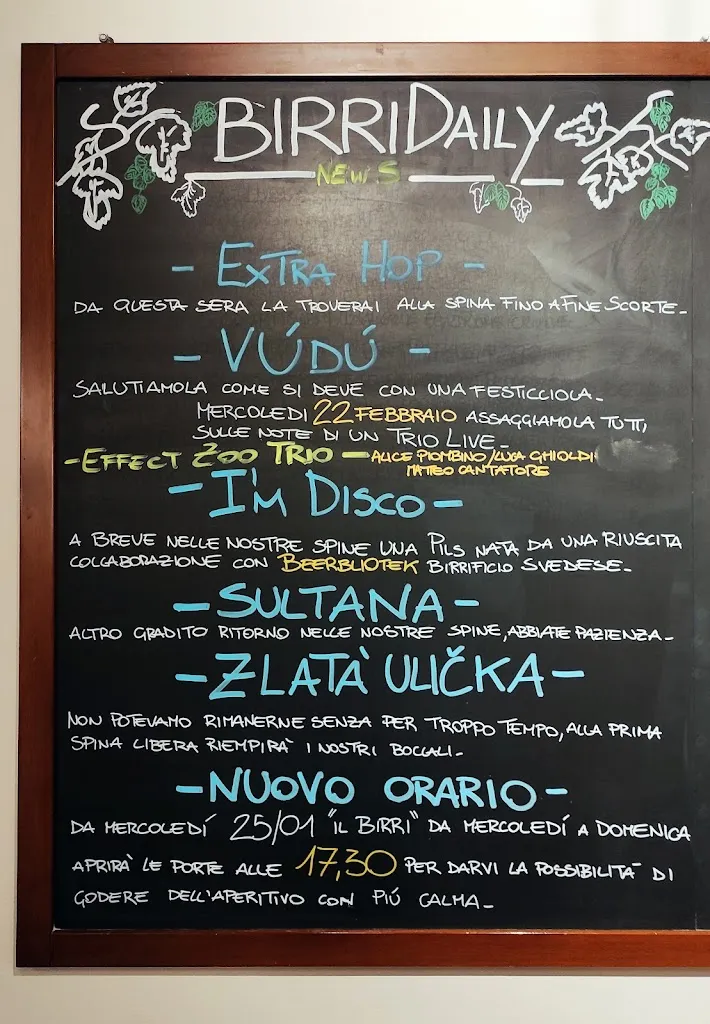 BIRRIDAILY
NEWS
- EXTRA HOP -
DA QUESTA SERA LA TROVERAI ALLA SPINA FINO A FINE SCORTE-
- VÚDÚ -
SALUTIAMOLA COME SI DEVE CON UNA FESTICCIOLA-
MERCOLEDI 22 FEBBRAIO ASSAGGIAMOLA TUTTI,
SULLE NOTE DI UN TRIO LIVE-
-EFFECT ZOO TRIO - ALICE PIOMBINO/LUCA GHIOLDI
MATTEO CANTATORE
- I'M DISCO -
A BREVE NELLE NOSTRE SPINE UNA PILS NATA DA UNA RIUSCITA
COLLABORAZIONE CON BEERBLIOTEK BIRRIFICIO SVEDESE-
- SULTANA -
ALTRO GRADITO RITORNO NELLE NOSTRE SPINE, ABBIATE PAZIENZA-
- ZLATÀ ULIČKA -
NON POTEVAMO RIMANERNE SENZA PER TROPPO TEMPO, ALLA PRIMA
SPINA LIBERA RIEMPIRÀ I NOSTRI BOCCALI-
- NUOVO ORARIO -
DA MERCOLEDÍ 25/01 "IL BIRRI" DA MERCOLEDÍ A DOMENICA
APRIRÀ LE PORTE ALLE 17,30 PER DARVI LA POSSIBILITÀ DI
GODERE DELL'APERITIVO CON PIÚ CALMA-